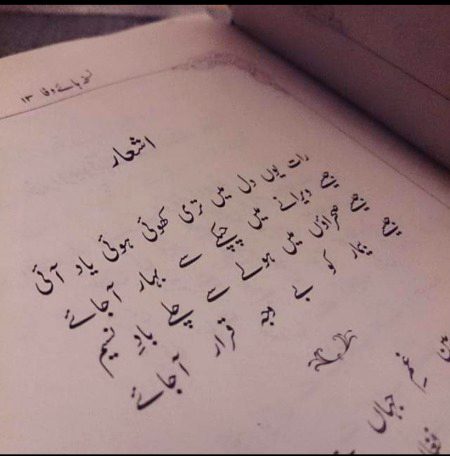 نسخہ ہائے وفا ١٣
اشعار
رات یوں دل میں تری کھوئی ہوئی یاد آئی
جیسے ویرانے میں چپکے سے بہار آجائے
جیسے صحراؤں میں ہولے سے چلے بادِ نسیم
جیسے بیمار کو بے وجہ قرار آجائے
غمِ جہاں